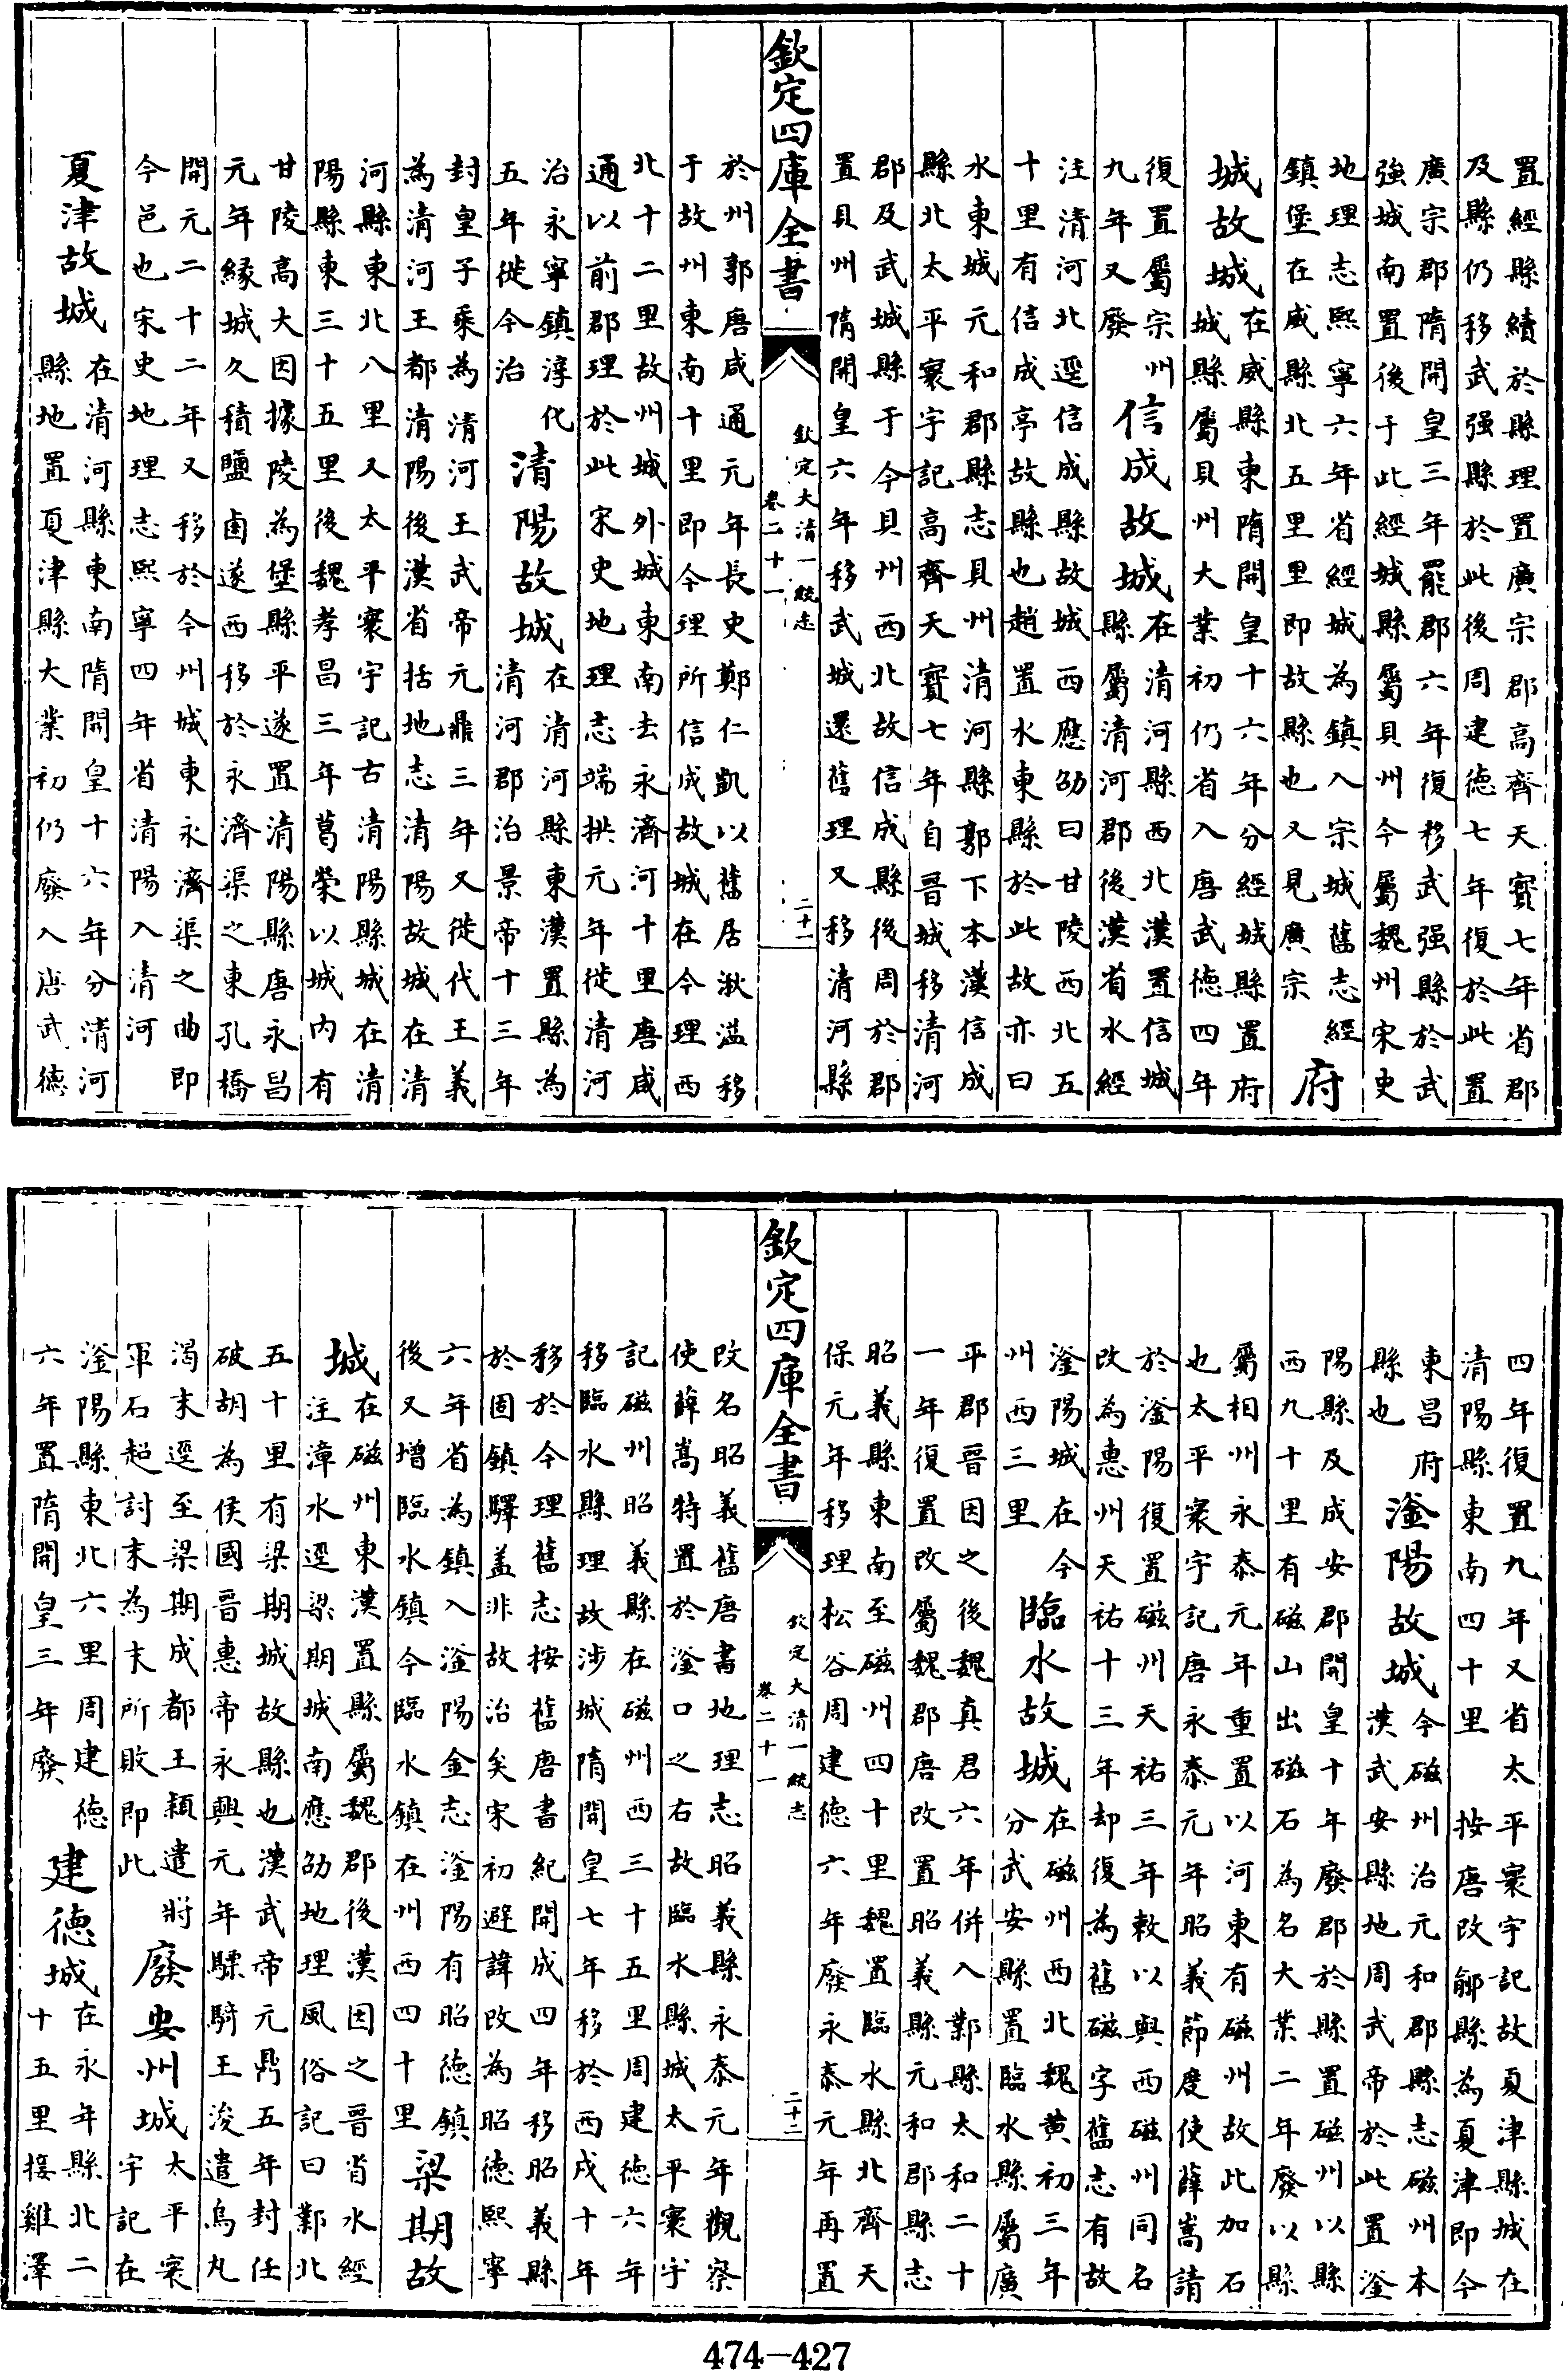 置經縣續於縣理置廣宗郡高齊天寳七年省郡
及縣仍移武强縣於此後周建德七年復於此置
廣宗郡隋開皇三年罷郡六年復移武强縣於武
強城南置後于此經城縣屬貝州今屬魏州宋史
地理志熙寧六年省經城為鎮入宗城舊志經
鎮堡在威縣北五里里即故縣也又見廣宗
府
城故城
在威縣東隋開皇十六年分經城縣置府
城縣屬貝州大業初仍省入唐武德四年
復置屬宗州
九年又廢
信成故城
在清河縣西北漢置信城
縣屬清河郡後漢省水經
注清河北逕信成縣故城西應劭曰甘陵西北五
十里有信成亭故縣也趙置水東縣於此故亦曰
水東城元和郡縣志貝州清河縣郭下本漢信成
縣北太平寰宇記高齊天寳七年自晉城移清河
郡及武城縣于今貝州西北故信成縣後周於郡
置貝州隋開皇六年移武城還舊理又移清河縣
欽定四庫全書
欽定大清一統志
卷二十一
二十一
於州郭唐咸通元年長史鄭仁凱以舊居湫溢移
于故州東南十里即今理所信成故城在今理西
北十二里故州城外城東南去永濟河十里唐咸
通以前郡理於此宋史地理志端拱元年徙清河
治永寧鎮淳化
五年徙今治
清陽故城
在清河縣東漢置縣為
清河郡治景帝十三年
封皇子乘為清河王武帝元鼎三年又徙代王義
為清河王都清陽後漢省括地志清陽故城在清
河縣東北八里又太平寰宇記古清陽縣城在清
陽縣東三十五里後魏孝昌三年葛榮以城内有
甘陵高大因據陵為堡縣平遂置清陽縣唐永昌
元年緣城久積鹽鹵遂西移於永濟渠之東孔橋
開元二十二年又移於今州城東永濟渠之曲即
今邑也宋史地理志熙寧四年省清陽入清河
夏津故城
在清河縣東南隋開皇十六年分清河
縣地置夏津縣大業初仍廢入唐武德
四年復置九年又省太平寰宇記故夏津縣城在
清陽縣東南四十里 按唐改鄃縣為夏津即今
東昌府
縣也
滏陽故城
今磁州治元和郡縣志磁州本
漢武安縣地周武帝於此置滏
陽縣及成安郡開皇十年廢郡於縣置磁州以縣
西九十里有磁山出磁石為名大業二年廢以縣
屬相州永泰元年重置以河東有磁州故此加石
也太平寰宇記唐永泰元年昭義節度使薛嵩請
於滏陽復置磁州天祐三年敕以與西磁州同名
改為惠州天祐十三年却復為舊磁字舊志有故
滏陽城在今
州西三里
臨水故城
在磁州西北魏黄初三年
分武安縣置臨水縣屬廣
平郡晉因之後魏真君六年併入鄴縣太和二十
一年復置改屬魏郡唐改置昭義縣元和郡縣志
昭義縣東南至磁州四十里魏置臨水縣北齊天
保元年移理松谷周建德六年廢永泰元年再置
欽定四庫全書
欽定大清一統志
卷二十一
二十二
改名昭義舊唐書地理志昭義縣永泰元年觀察
使薛嵩特置於滏口之右故臨水縣城太平寰宇
記磁州昭義縣在磁州西三十五里周建德六年
移臨水縣理故涉城隋開皇七年移於西戍十年
移於今理舊志按舊唐書紀開成四年移昭義縣
於固鎮驛盖非故治矣宋初避諱改為昭德熙寧
六年省為鎮入滏陽金志滏陽有昭德鎮
後又增臨水鎮今臨水鎮在州西四十里
梁期故
城
在磁州東漢置縣屬魏郡後漢因之晉省水經
注漳水逕梁期城南應劭地理風俗記曰鄴北
五十里有梁期城故縣也漢武帝元鼎五年封任
破胡為侯國晉惠帝永興元年驃騎王浚遣烏丸
渴末逕至梁期成都王穎遣將
軍石超討末為末所敗即此
廢安州城
太平寰
宇記在
滏陽縣東北六里周建德
六年置隋開皇三年廢
建德城
在永年縣北二
十五里接雞澤
474-427